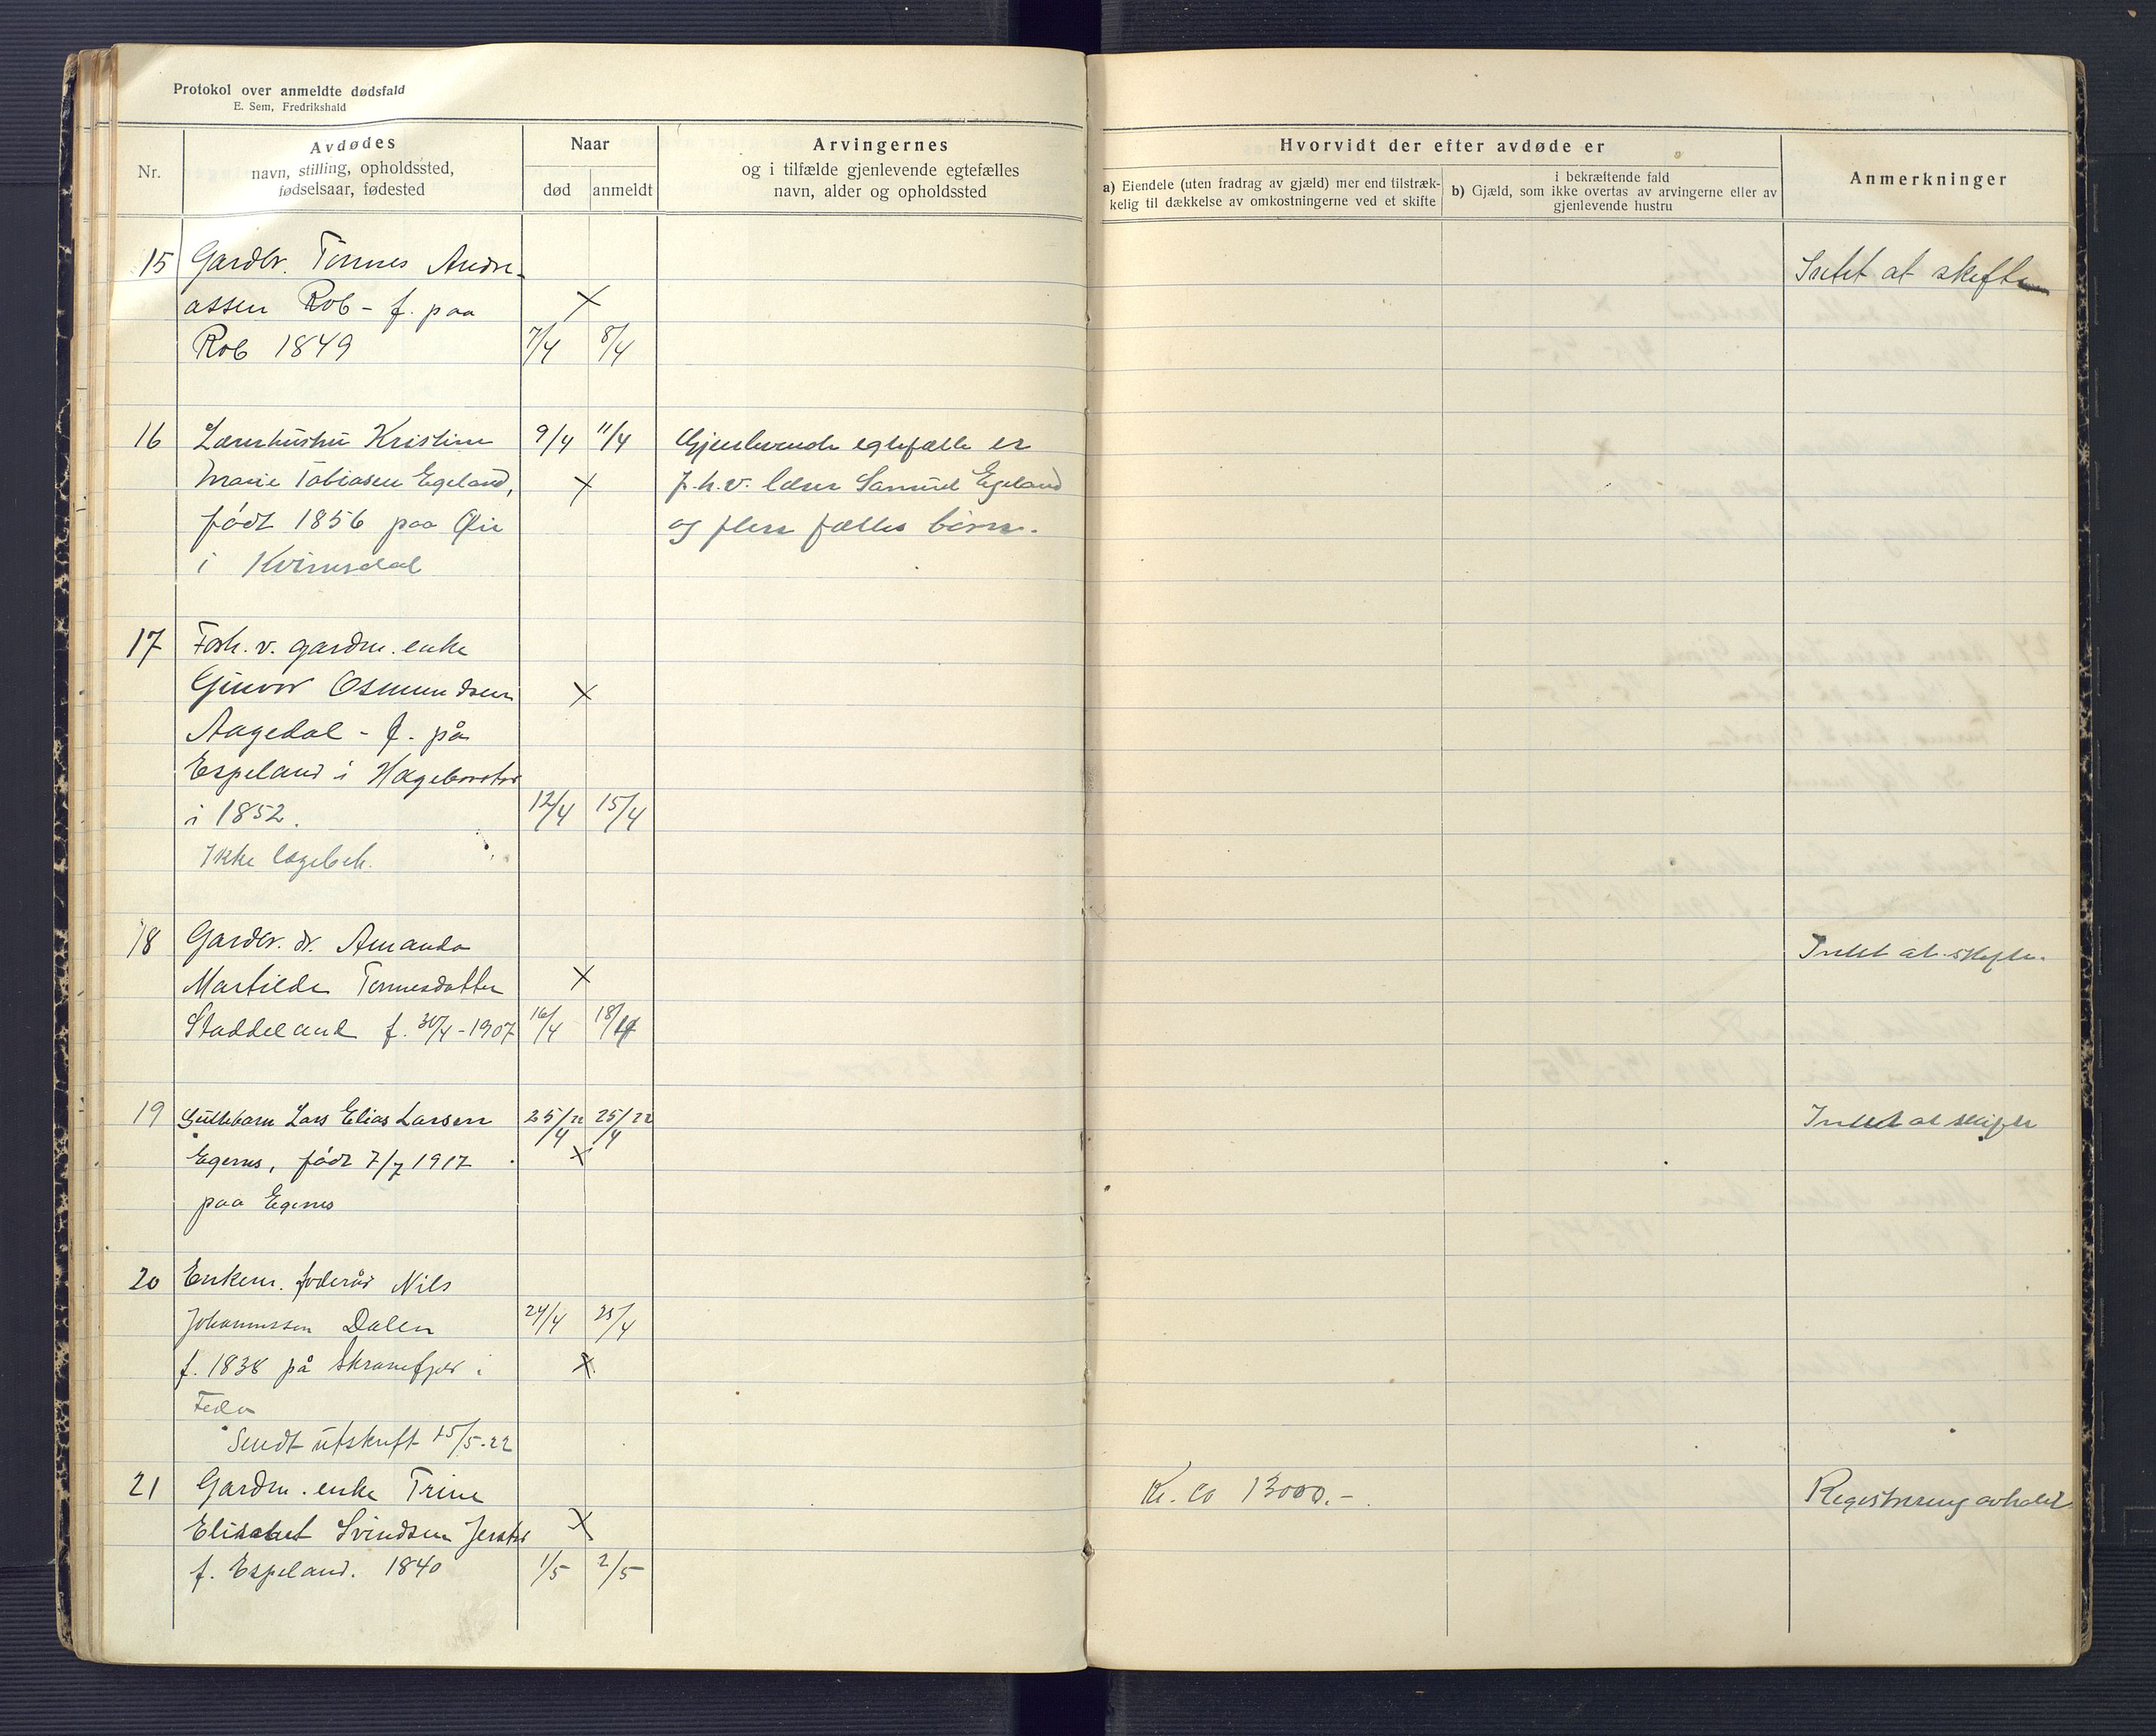 Protokol over anmeldte dødsfald
E. Sem, Fredrikshald
Nr.
Avdødes
navn, stilling, opholdssted,
fødselsaar, fødested
Naar
død
anmeldt
Arvingernes
og i tilfælde gjenlevende egtefælles
navn, alder og opholdssted
Hvorvidt der efter avdøde er
a) Eiendele (uten fradrag av gjæld) mer end tilstræk-
kelig til dækkelse av omkostningerne ved et skifte
i bekræftende fald
b) Gjæld, som ikke overtas av arvingerne eller av
gjenlevende hustru
Anmerkninger
15 Gardbr. Tønnes Andre-
Intet at skifte
assen Rob - f. paa ×
Rob 1849 7/4 8/4
16 Lærerhustru Kristine 9/4 11/4 Gjenlevende egtefælle er
Marie Tobiasen Egeland, × f.h.v. lærer Samuel Egeland
født 1856 paa Øie og flere fælles børn.
i Kvinesdal
17 Forh. v. gardm. enke
Gunvor Osmundsen ×
Aagedal - f. på
Espeland i Hægebostad
i 1852. 12/4 15/4
Ikke lægebeh.
18 Gardbr. dr. Amanda Intet at skifte.
Martilde Tønnesdatter ×
Staddeland f. 30/4-1907 16/4 18/4
19 Guttebarn Lars Elias Larsen 25/4 22 25/4 22 Intet at skifte
Egenes, født 7/7 1917 ×
paa Egenes
20 Enkem. føderåd Nils
Johannessen Dalen 24/4 25/4
f. 1838 på Skranefjeld i ×
Feda
Sendt utskrift 15/5-22
21 Gardm. enke Trine Kr. ca 13000.- Registrering avholdt
Elisabet Svindsen Jerstad ×
f. Espeland. 1840 1/5 2/5